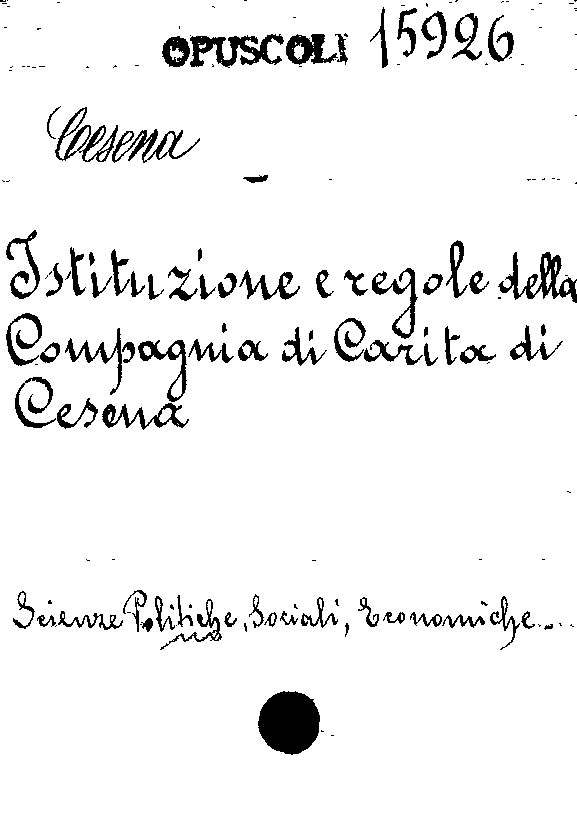 OPUSCOLI 15926
Cesena
Istituzione e regole della
Compagnia di Carita di
Cesena
Scienze Politiche, Sociali, Economiche